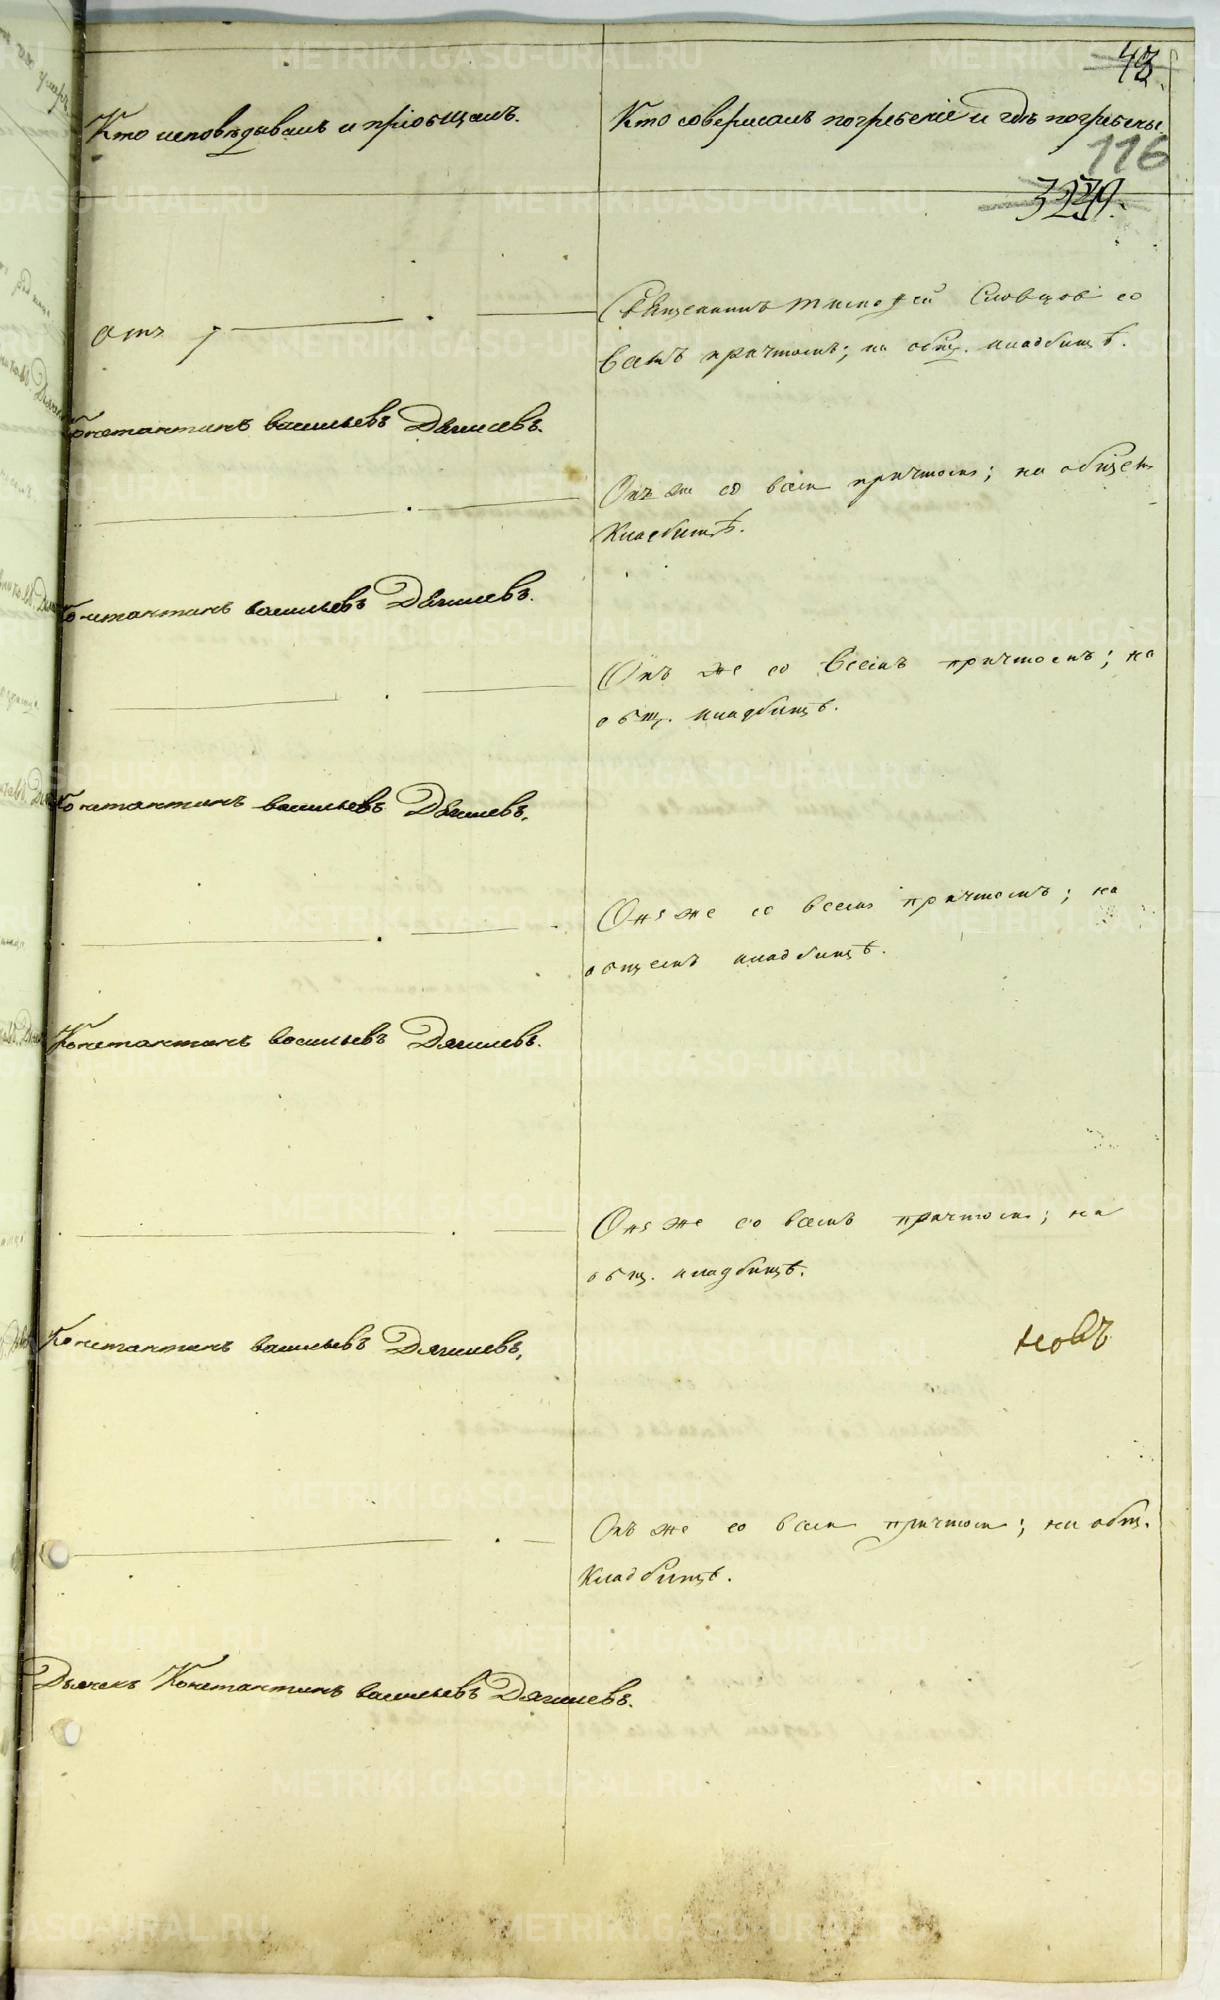 43.
Кто исповѣдывалъ и пріобщалъ.
Кто совершалъ погребеніе и гдѣ погребены.
116
Священникъ Тимофей Словцов со
всемъ причтомъ; на общ. кладбищѣ.
Константинъ Васильевъ Дягилевъ.
Онъ же со всем причтомъ; на общем
Кладбищѣ.
Константинъ Васильевъ Дягилевъ.
Онъ же со всемъ причтомъ; на
общ. кладбищѣ.
Константинъ Васильевъ Дягилевъ.
Онъ же со всемъ причтомъ; на
общемъ кладбищѣ.
Константинъ Васильевъ Дягилевъ.
Онъ же со всемъ причтомъ; на
общ. кладбищѣ.
Константинъ Васильевъ Дягилевъ.
новъ
Онъ же со всем причтом; на общ.
Кладбищѣ.
Дьячекъ Константинъ Васильевъ Дягилевъ.
METRIKI.GASO-URAL.RU